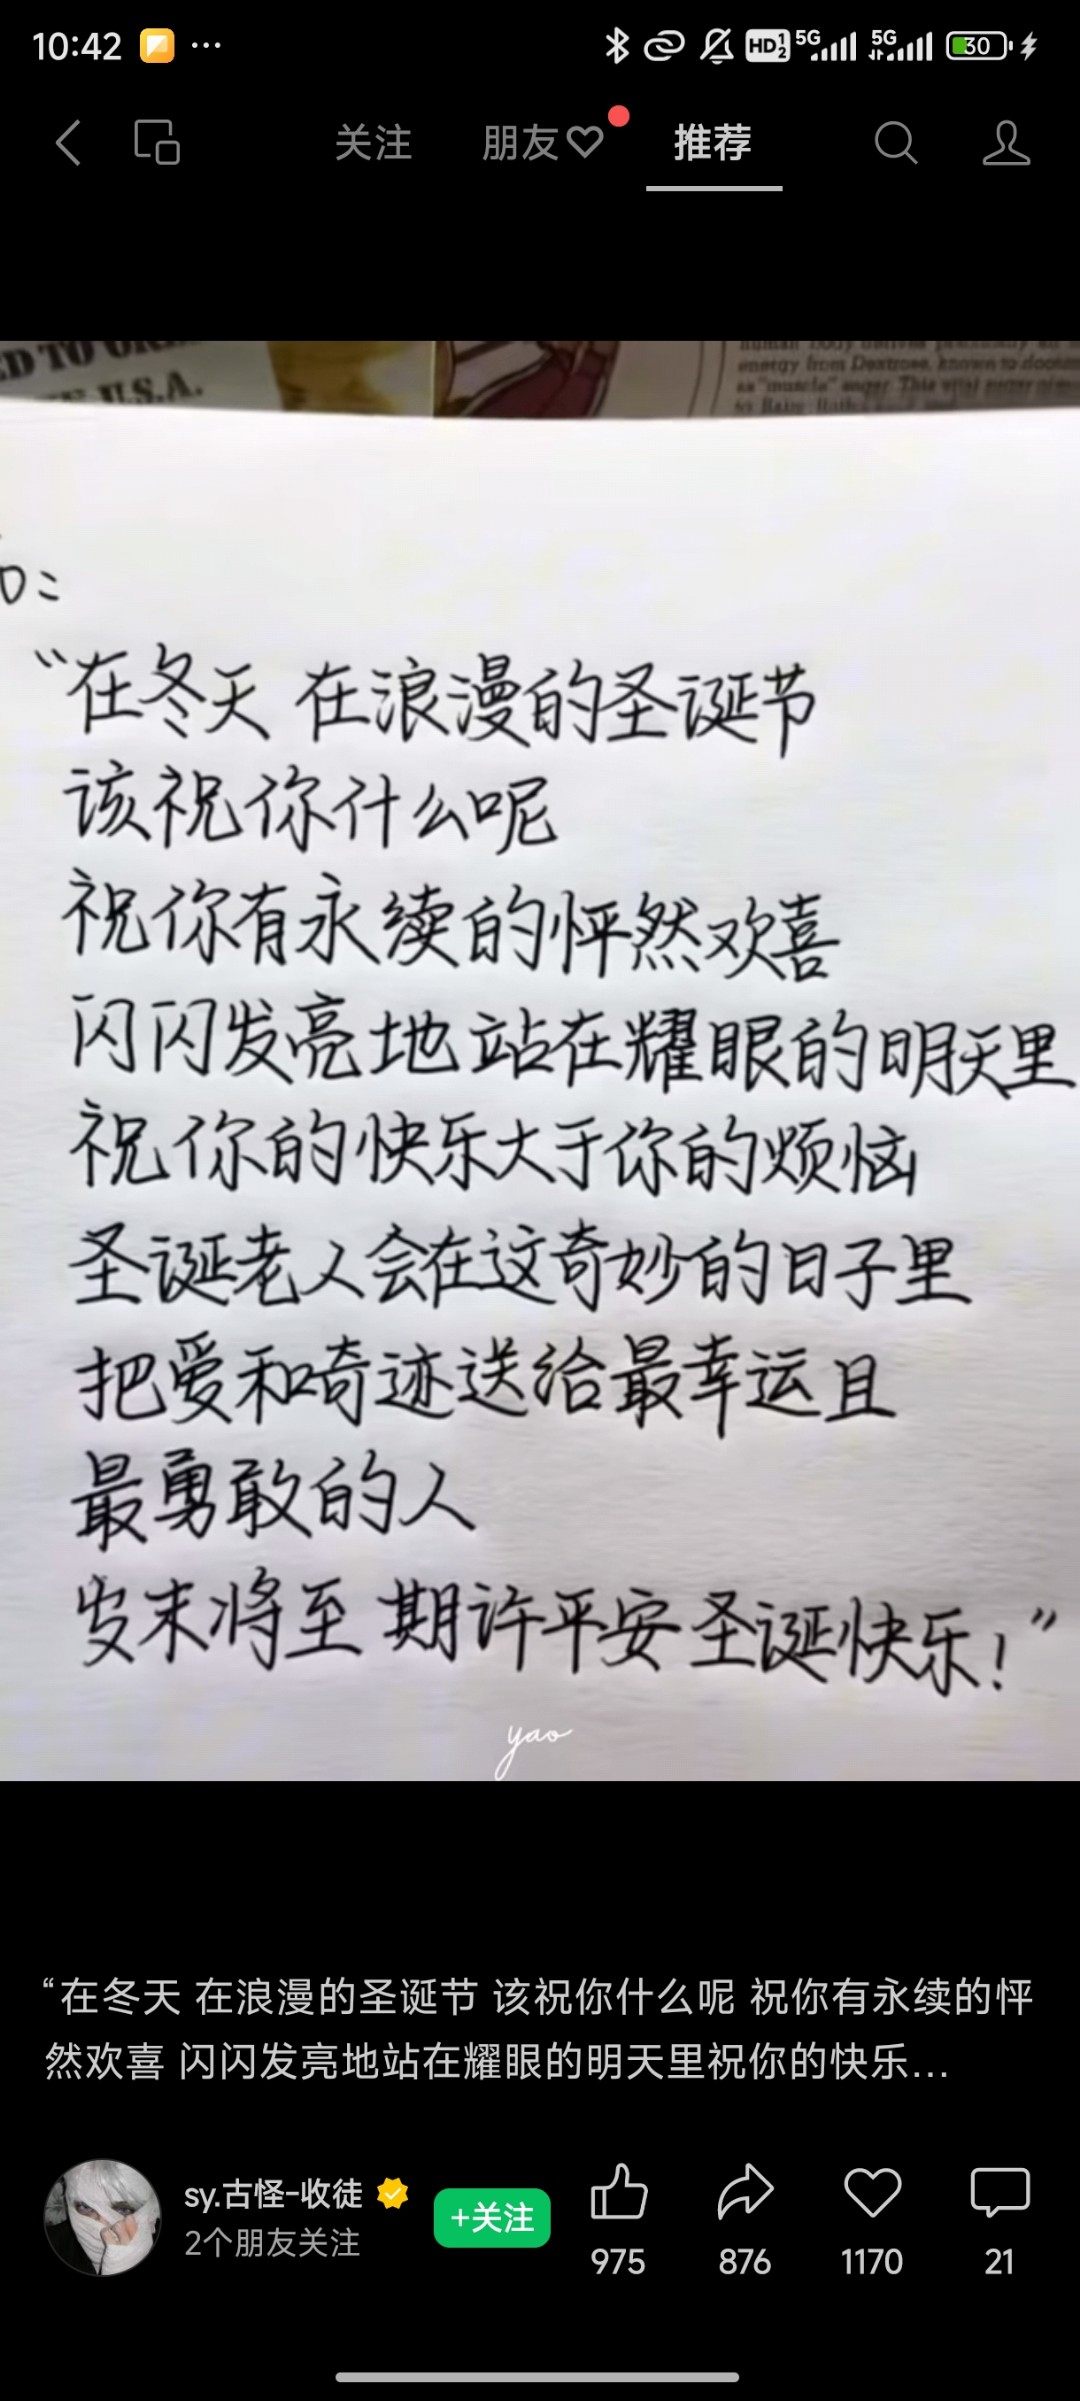 10:42
HD 1 2 5G 5G 30
关注 朋友 推荐
U.S.A.
energy from Dextrose, known to
as "muscle" sugar. This vital
"在冬天 在浪漫的圣诞节
该祝你什么呢
祝你有永续的怦然欢喜
闪闪发亮地站在耀眼的明天里
祝你的快乐大于你的烦恼
圣诞老人会在这奇妙的日子里
把爱和奇迹送给最幸运且
最勇敢的人
岁末将至 期许平安 圣诞快乐!"
yao
“在冬天 在浪漫的圣诞节 该祝你什么呢 祝你有永续的怦
然欢喜 闪闪发亮地站在耀眼的明天里祝你的快乐...
sy.古怪-收徒
2个朋友关注
+关注
975 876 1170 21